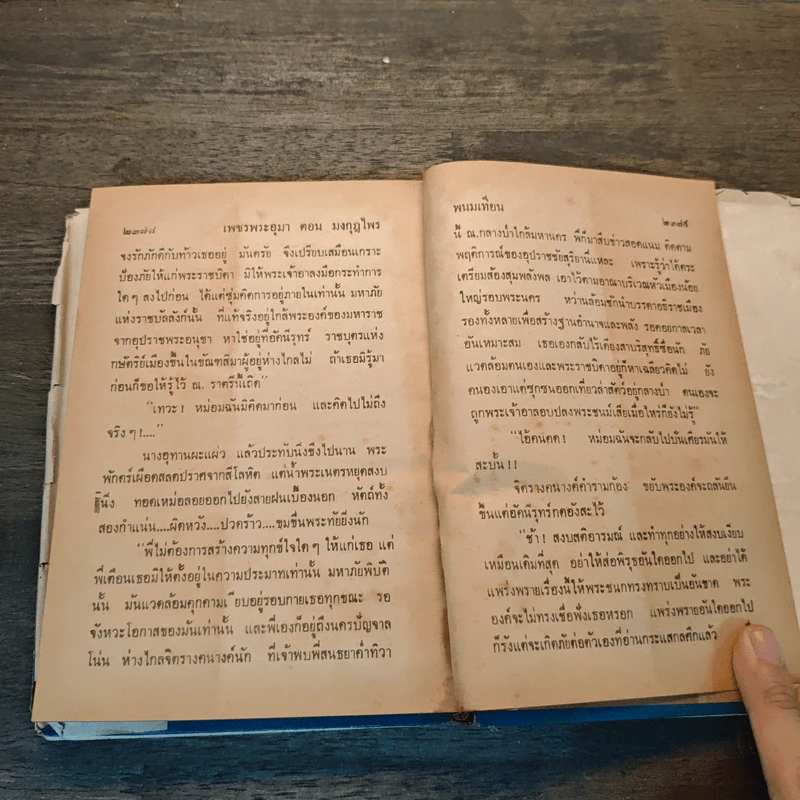 ๒๓๗๘ เพชรพระอุมา ตอน มงกุฎไพร
จงรักภักดีกับท้าวเธออยู่ มันตรัย จึงเปรียบเสมือนเกราะ
ป้องภัยให้แก่พระราชบิดา มิให้พระเจ้าอาลงมือกระทำการ
ใดๆ ลงไปก่อน ได้แต่ซุ่มคิดการอยู่ภายในเท่านั้น มหาภัย
แห่งราชบัลลังก์นั้น ที่แท้จริงอยู่ใกล้พระองค์ของมหาราช
จากอุปราชพระอนุชา หาใช่อยู่ที่อัคนีรุทร์ ราชบุตรแห่ง
กษัตริย์เมืองขึ้นในขัณฑสีมาผู้อยู่ห่างไกลไม่ ถ้าเธอมิรู้มา
ก่อนก็ขอให้รู้ไว้ ณ. ราตรีนี้เถิด”
“เทวะ! หม่อมฉันมิคิดมาก่อน และคิดไปไม่ถึง
จริงๆ!....”
นางอุทานผะแผ่ว แล้วประทับนิ่งขึงไปนาน พระ
พักตร์เผือดสลดปราศจากสีโลหิต แต่น้ำพระเนตรหยุดสงบ
นิ่ง ทอดเหม่อลอยออกไปยังสายฝนเบื้องนอก หัตถ์ทั้ง
สองกำแน่น....ผิดหวัง....ปวดร้าว....ขมขื่นพระทัยยิ่งนัก
“พี่ไม่ต้องการสร้างความทุกข์ใจใดๆ ให้แก่เธอ แต่
พี่เตือนเธอมิให้ตั้งอยู่ในความประมาทเท่านั้น มหาภัยพิบัติ
นั้น มันแวดล้อมคุกคามเงียบอยู่รอบกายเธอทุกขณะ รอ
จังหวะโอกาสของมันเท่านั้น และพี่เองก็อยู่ถึงนครปัญจาล
โน่น ห่างไกลจิตรางคนางค์นัก ที่เจ้าพบพี่สนธยาค่ำทิวา
พนมเทียน ๒๓๗๙
นี้ ณ.กลางป่าใกล้มหานคร พี่ก็มาสืบข่าวสอดแนม ติดตาม
พฤติการณ์ของอุปราชชัยสุริยานแหละ เพราะรู้ว่าได้ตระ
เตรียมส้องสุมพลังพล เอาไว้ตามอาณาบริเวณหัวเมืองน้อย
ใหญ่รอบพระนคร หว่านล้อมชักนำบรรดาอธิราชเมือง
รองทั้งหลายเพื่อสร้างฐานอำนาจและพลัง รอคอยกาลเวลา
อันเหมาะสม เธอเองกลับไร้เดียงสาบริสุทธิ์ซื่อนัก ภัย
แวดล้อมตนเองและพระราชบิดาอยู่ก็หาเฉลียวคิดไม่ ยัง
คนองเอาแต่ซุกซนออกเที่ยวล่าสัตว์อยู่กลางป่า ตนเองจะ
ถูกพระเจ้าอาลอบปลงพระชนม์เสียเมื่อไหร่ก็ยังไม่รู้”
“ไอ้คนคด! หม่อมฉันจะกลับไปบั่นเศียรมันให้
สะบั้น!!
จิตรางคนางค์คำรามก้อง ขยับพระองค์จะถลันยืน
ขึ้นแต่อัคนีรุทร์กดองสะไว้
“ช้า! สงบสติอารมณ์ และทำทุกอย่างให้สงบเงียบ
เหมือนเดิมที่สุด อย่าให้ส่อพิรุธอันใดออกไป และอย่าได้
แพร่งพรายเรื่องนี้ให้พระชนกทรงทราบเป็นอันขาด พระ
องค์จะไม่ทรงเชื่อฟังเธอหรอก แพร่งพรายอันใดออกไป
ก็รังแต่จะเกิดภัยต่อตัวเองที่อ่านกระแสกลศึกแล้ว